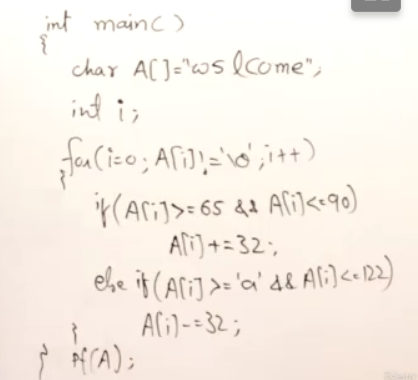 int main()
{
char A[]="wslCome";
int i;
for(i=0; A[i]!='\0'; i++)
{
if(A[i]>=65 && A[i]<=90)
A[i]+=32;
else if(A[i]>='a' && A[i]<=122)
A[i]-=32;
}
} pf(A);